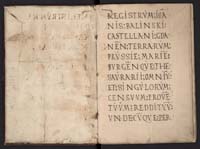 REGISTRVM: IA
NIS: BALINSKI:
CASTELLANI: G
NEN: TERRARVM:
PRVSSIE: MARIE
BVRGEN: QVE: THE
SAVRARII: OMNIV
ET: SINGVLORVM:
CENSVVM: PROVE
TVVM: REDDITVV
VNDECVQVE: PER